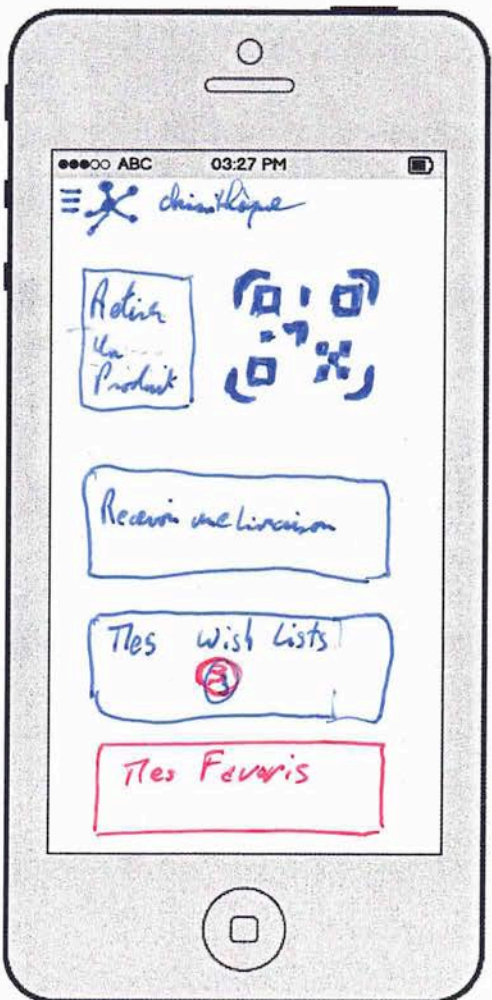 ABC 03:27 PM
chimithèque
Retirer
un
Produit
Recevoir une livraison
Mes Wish Lists
3
Mes Favoris